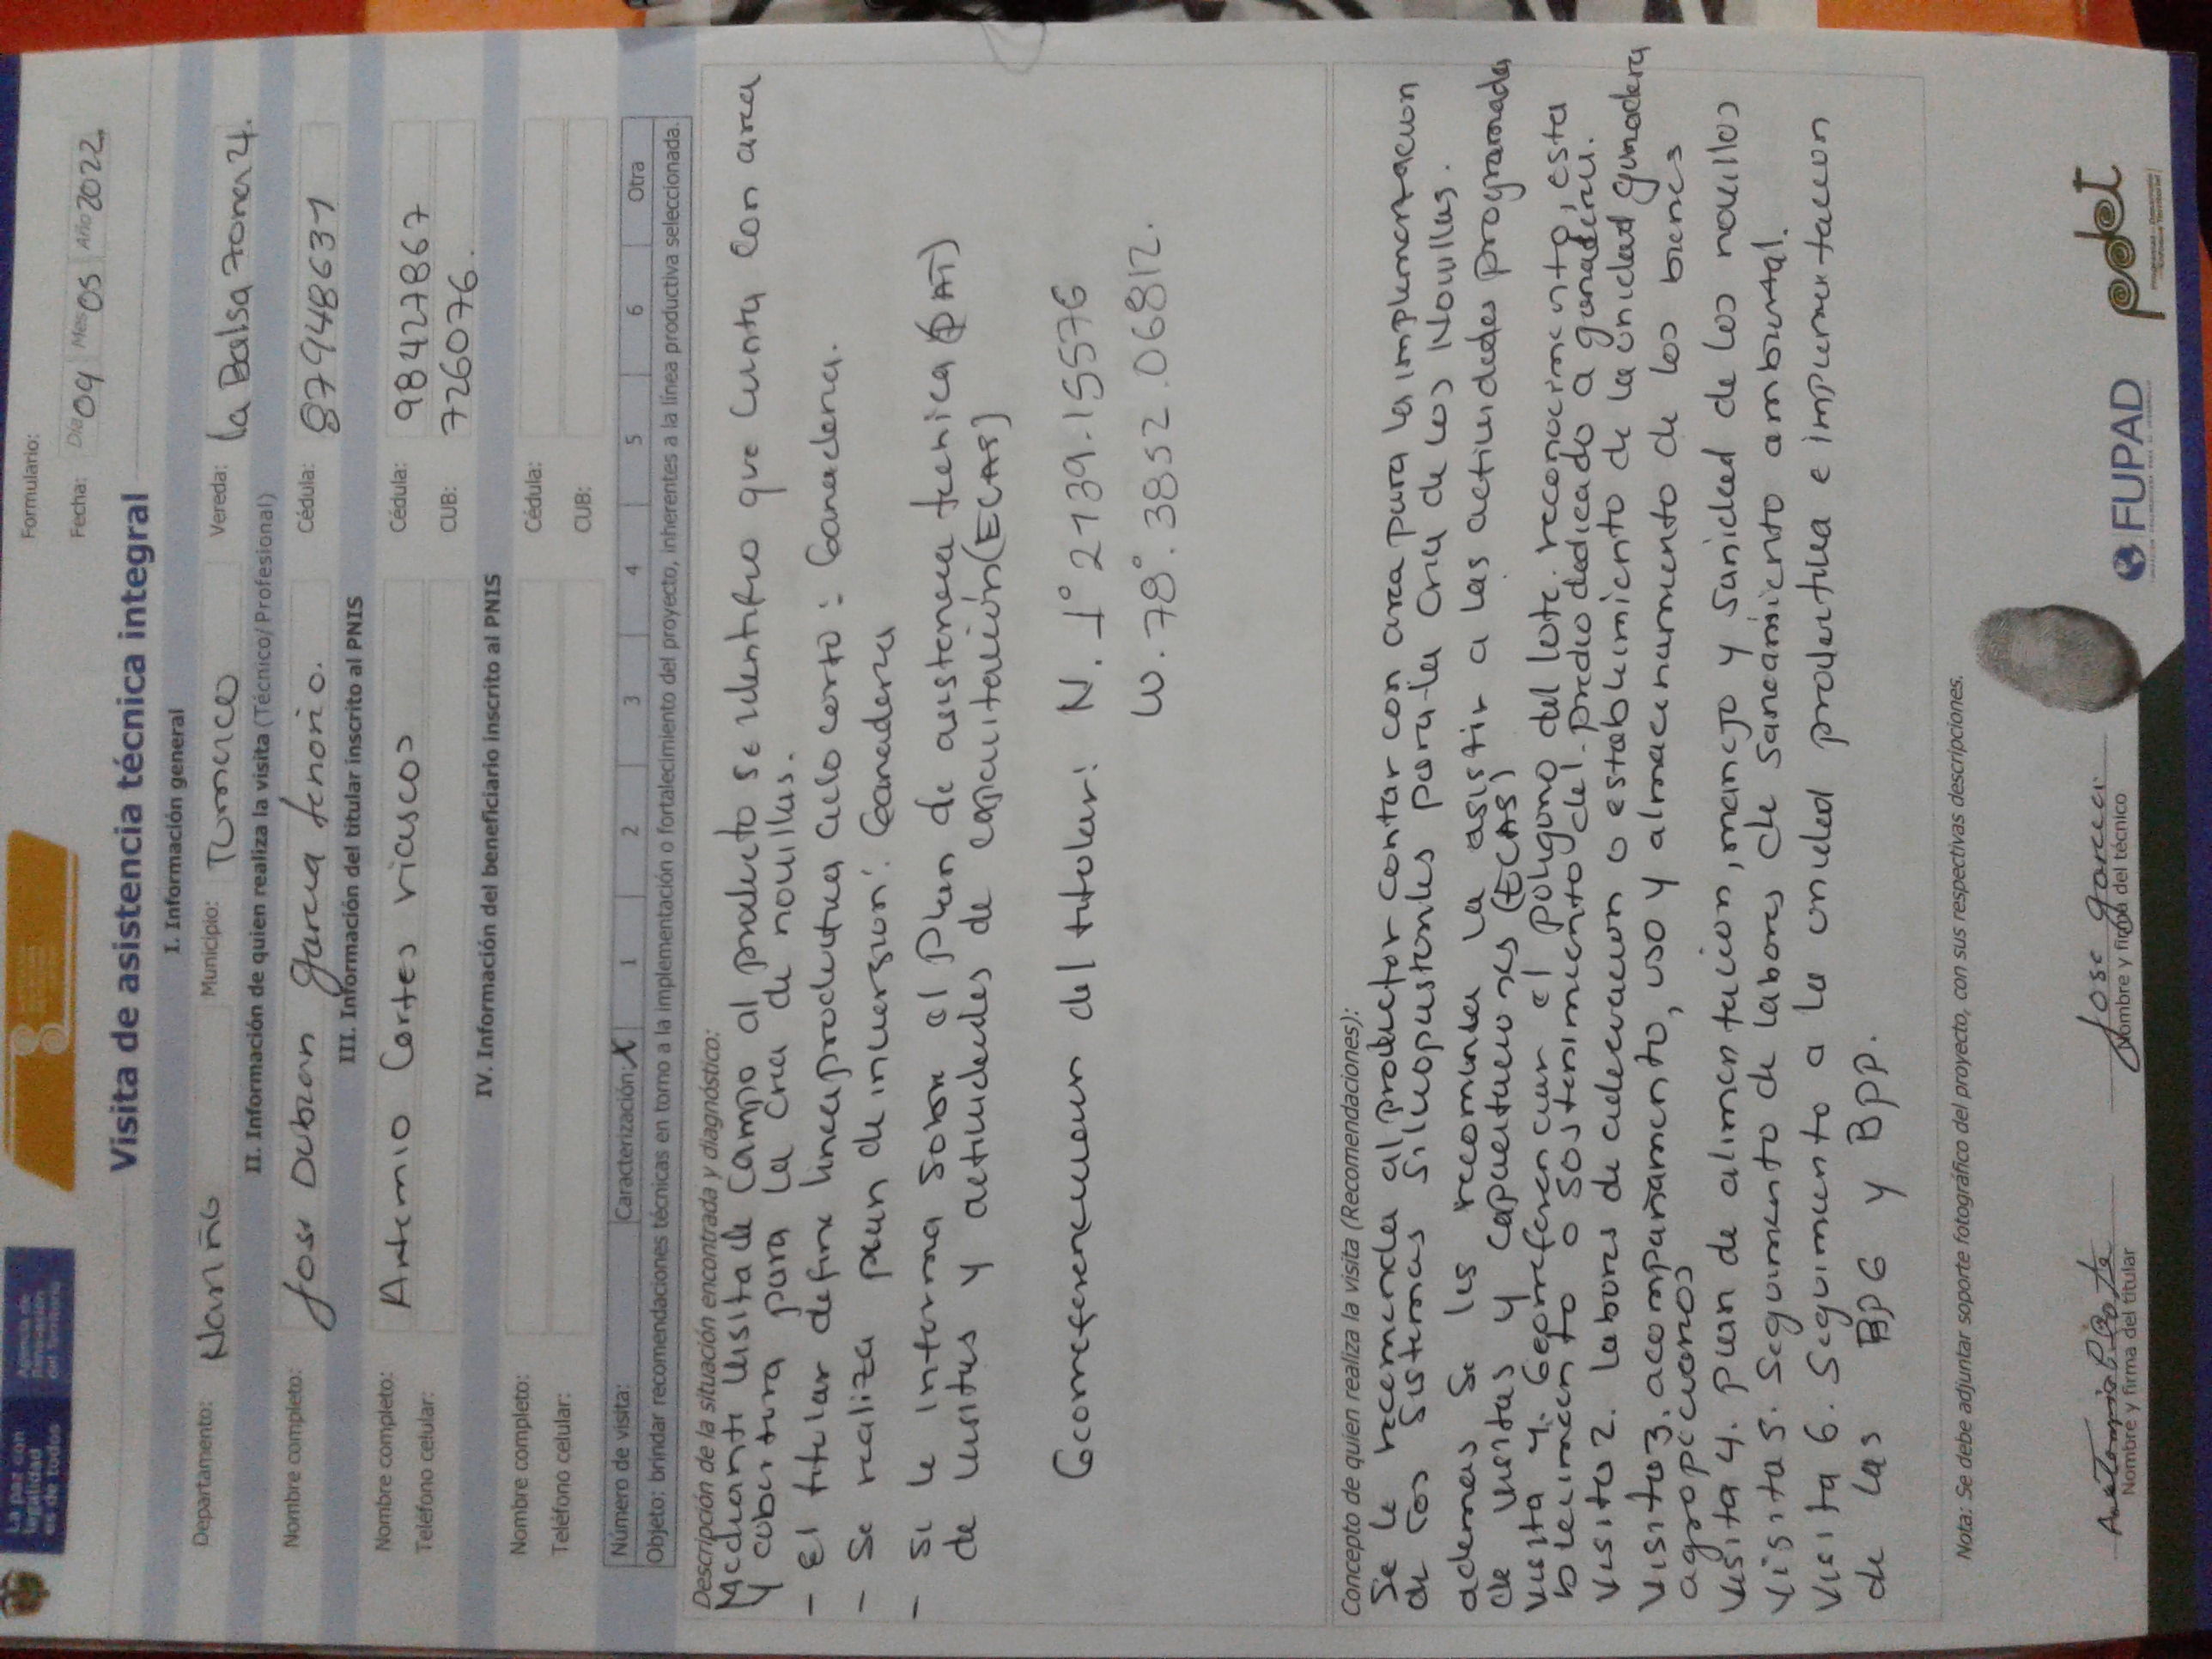 La paz con
legalidad
es de todos
Agencia de
Renovación
del Territorio
Formulario:
Fecha: Dia 09 Mes 05 Año 2022
Visita de asistencia técnica integral
I. Información general
Departamento: Nariño Municipio: Tumaco Vereda: la Balsa zona 4.
II. Información de quien realiza la visita (Técnico/Profesional)
Nombre completo: Jose Duban garcia tenorio. Cédula: 87948631
III. Información del titular inscrito al PNIS
Nombre completo: Artemio Cortes vicascos Cédula: 98427867
Teléfono celular: CUB: 726076.
IV. Información del beneficiario inscrito al PNIS
Nombre completo: Cédula:
Teléfono celular: CUB:
Número de visita: Caracterización: X 1 2 3 4 5 6 Otra
Objeto: brindar recomendaciones técnicas en torno a la implementación o fortalecimiento del proyecto, inherentes a la línea productiva seleccionada.
Descripción de la situación encontrada y diagnóstico:
Mediante visita de Campo al producto se identifico que cuenta con area
y cobertura para la cria de novillas.
- El titular define linea productiva ciclo corto: Ganaderia.
- Se realiza plan de inversion: Ganaderia
- Se le informa sobre el Plan de asistencia tecnica (PAT)
de visitas y actividades de capacitación (ECAS)
Georeferenciacion del titular: N. 1° 2139.15576
W. 78°. 3852.06812.
Concepto de quien realiza la visita (Recomendaciones):
Se le recomienda al productor contar con area para la implementacion
de los Sistemas Silvopastoriles para la cria de los Novillas.
ademas Se les recomienda la asistir a las actividades programadas
de visitas y capacitaciones (ECAS)
visita 1. Georeferenciar el poligono del lote. reconocimiento, esta
blecimiento o sostenimiento del. predio dedicado a ganaderia.
Visita 2. labores de adecuacion o establecimiento de la unidad ganadera
Visita 3. acompañamiento, uso y almacenamiento de los bienes
agropecuarios
Visita 4. plan de alimentacion, manejo y sanidad de los novillos
Visita 5. Seguimiento de labores de saneamiento ambiental.
Visita 6. Seguimiento a la unidad productiva e implementacion
de las BPG y BPP.
Nota: Se debe adjuntar soporte fotográfico del proyecto, con sus respectivas descripciones.
Jose garcia
Nombre y firma del titular Nombre y firma del técnico
FUPAD
pdet